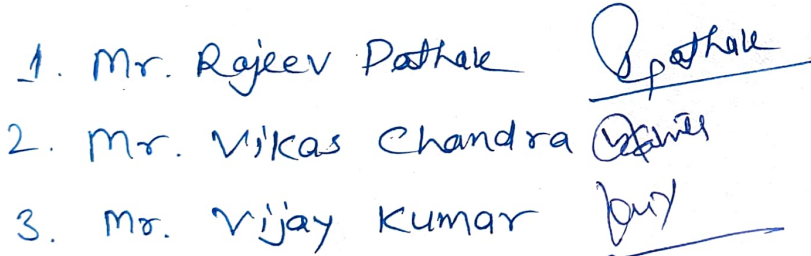 1. Mr. Rajeev Pathak Pathak
2. Mr. Vikas Chandra
3. Mr. Vijay Kumar